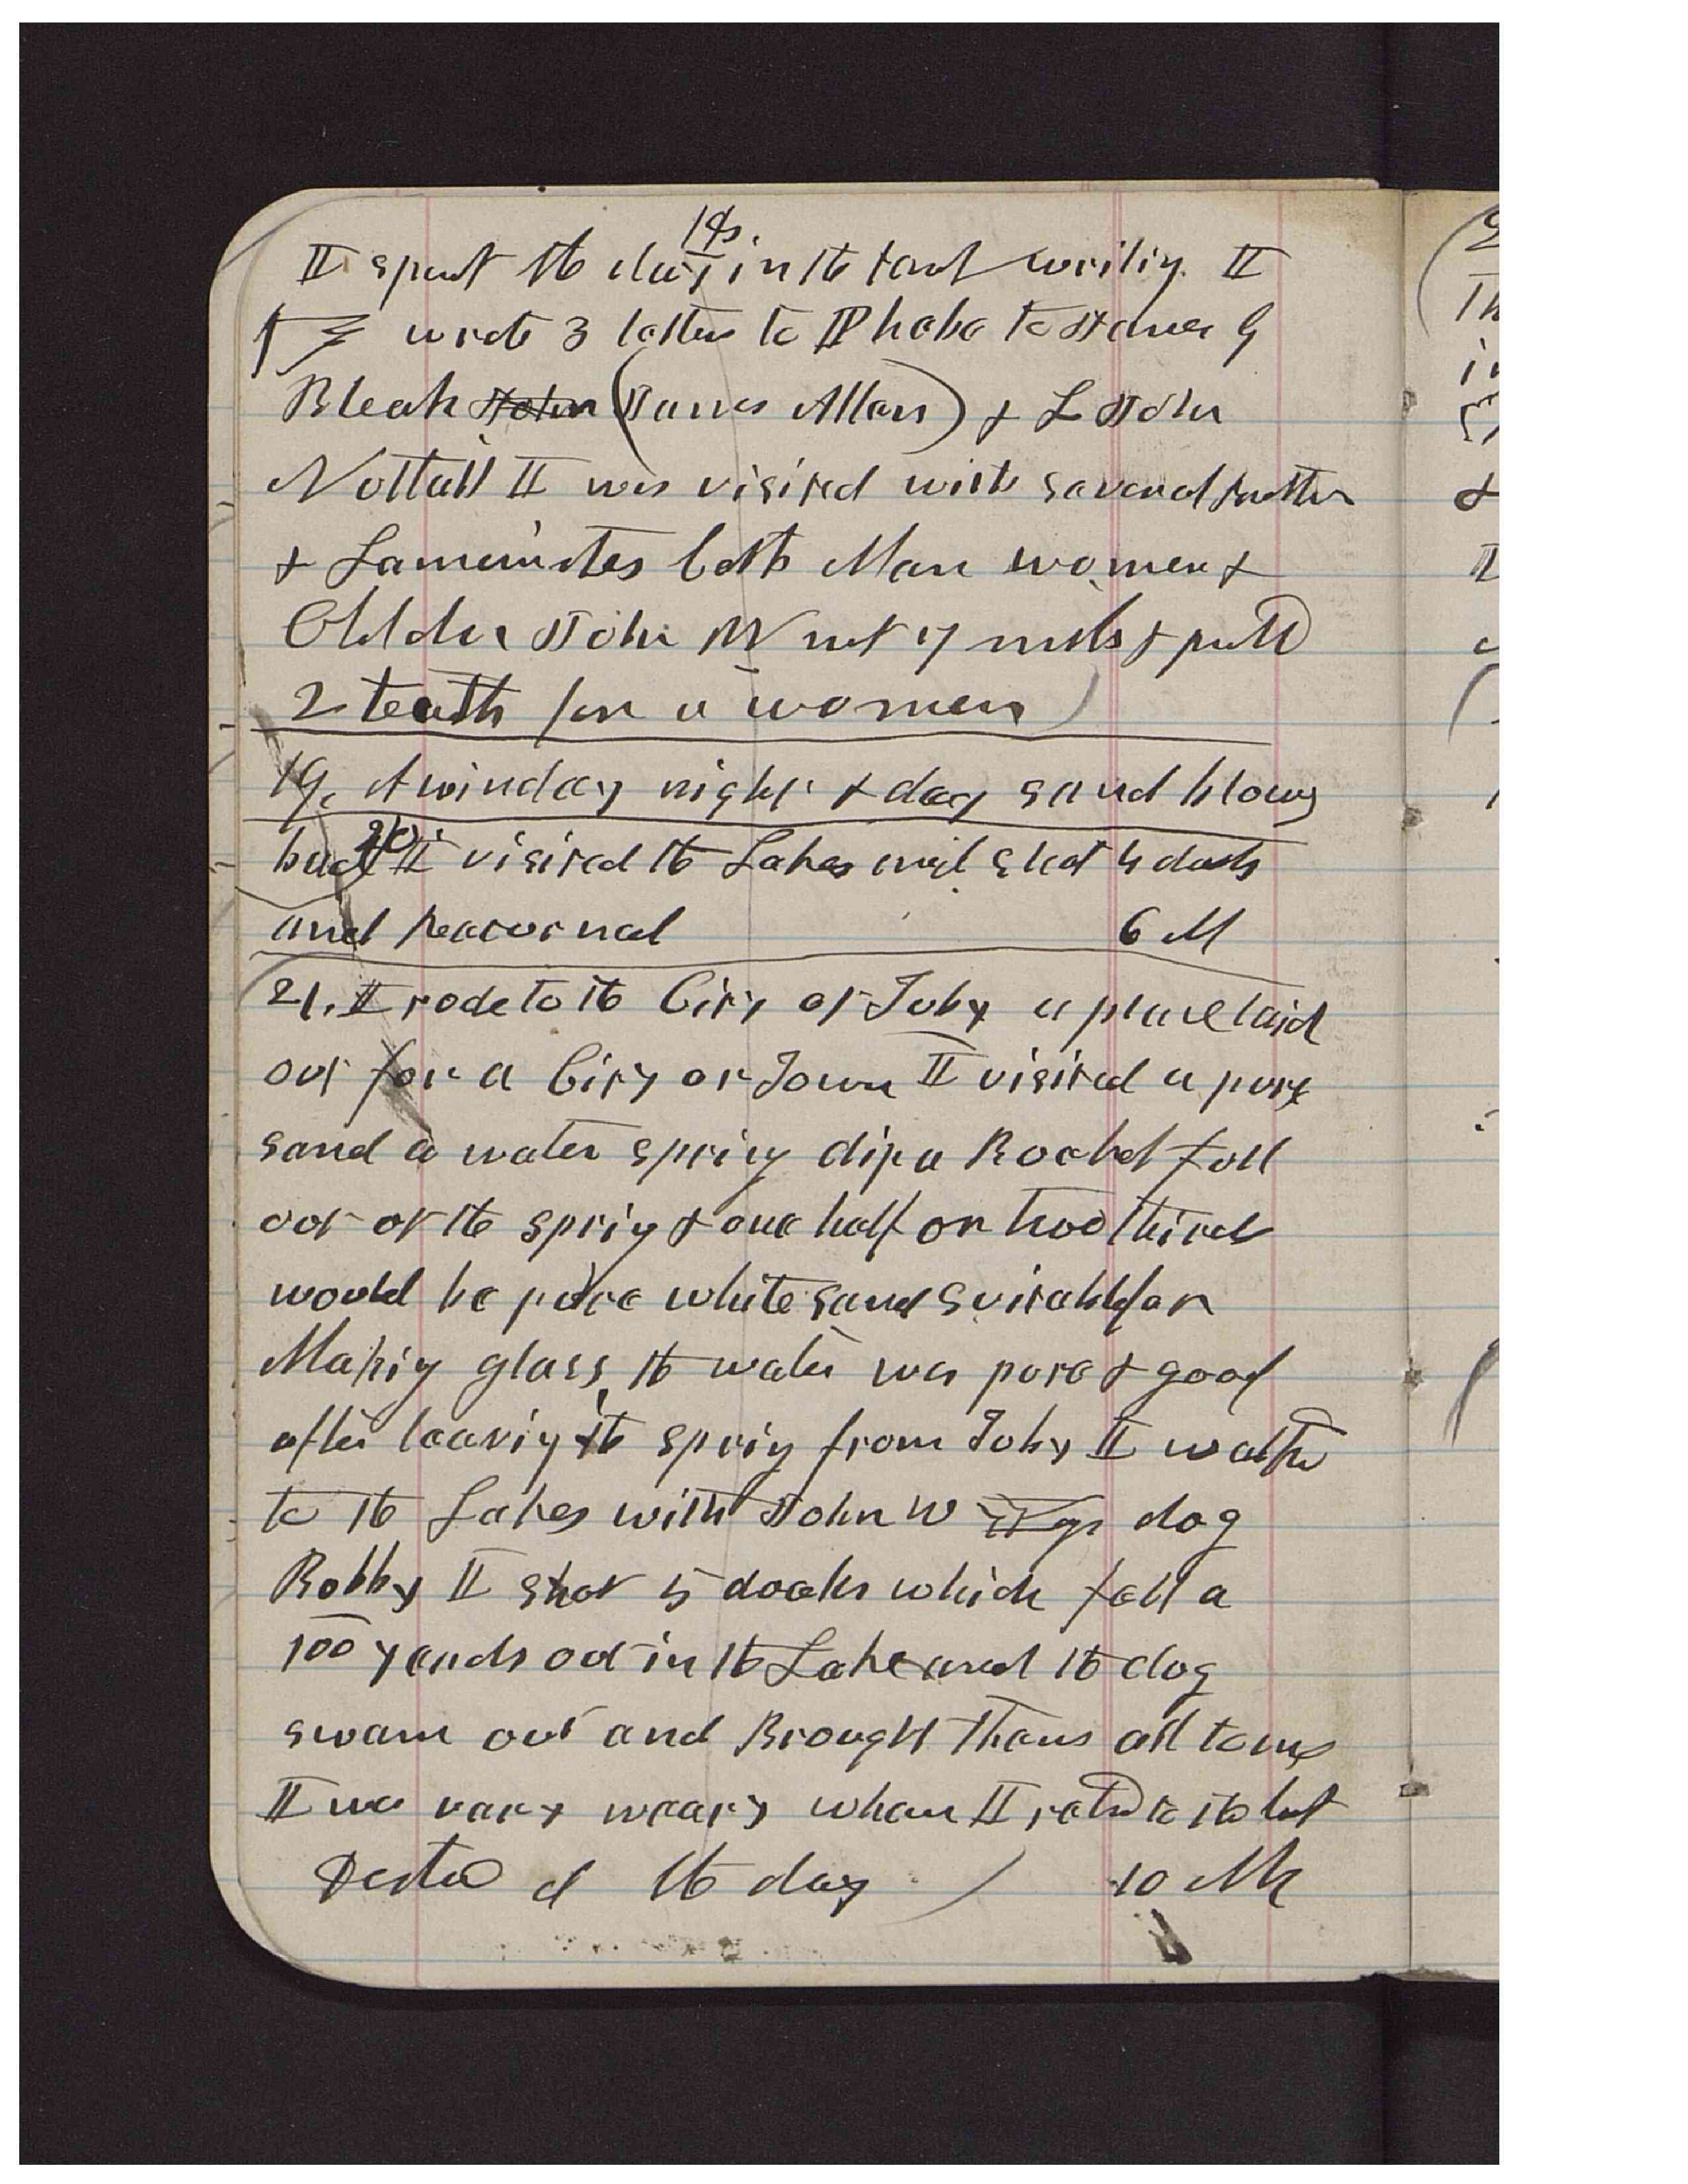 18.
I spent the day in the tent writing. I
wrote 3 letters to Pheba to James G
Bleak John (James Allen) & L John
Nuttall I was visited with several
& Lamanites both Men women &
Children John W went 7 mils & pulld
2 teeth for a women)
19. A winday night & day sand blows
bad 20 I visited the Lakes and shot 4 ducks
and returned 6 M
21. I rode to the City of Toby a place laid
out for a City or Town I visited a pure
sand & water spring dip a Bocket full
out of the spring & one half or two thirds
would be pure white sand suitable for
Making glass the water was pure & good
after leaving the spring from Toby I walkd
to the Lakes with John W dog
Bobby I shot 5 docks which fell a
100 yards out in the Lake and the dog
swam out and Brought them all to me
I was vary weary when I retd to the hut
of the day) 10 M